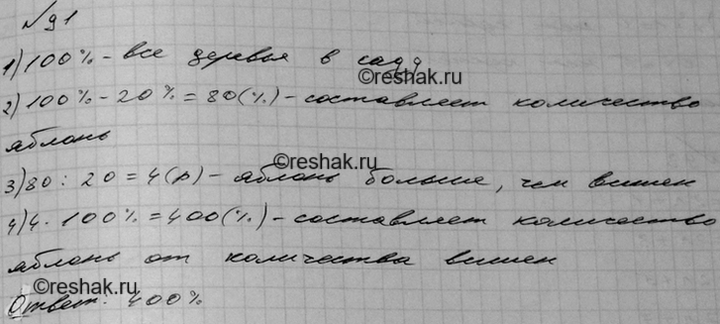 №91
1) 100% - все деревья в саду
©reshak.ru
2) 100% - 20% = 80(%) - составляет количество
яблонь
©reshak.ru
3) 80 : 20 = 4(р) - яблонь больше, чем вишен
4) 4 · 100% = 400(%) - составляет количество
яблонь от количества вишен
©reshak.ru
Ответ: 400%